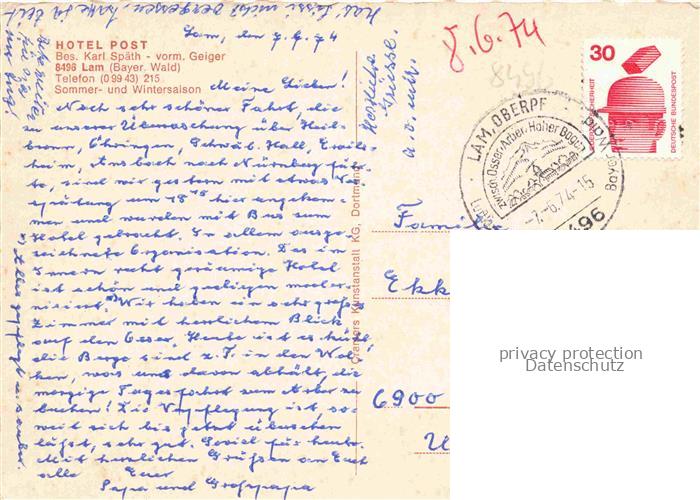 Hab Sissi nicht vergessen, habe sie dort
Lam, den 7.6.74
HOTEL POST
Bes. Karl Späth - vorm. Geiger
8496 Lam (Bayer. Wald)
Telefon (0 99 43) 215
Sommer- und Wintersaison
Meine Lieben!
Nach sehr schöner Fahrt, die
zu unserer Überraschung über Heil-
bronn, Öhringen, Schwäb. Hall, Crails-
heim, Ansbach nach Nürnberg führ-
te, sind wir gestern mit etwas Ver-
spätung um 18 hier angekom-
men und wurden mit Bus zum
Hotel gebracht. In allem ausge-
zeichnete Organisation. Das im
Innern recht geräumige Hotel
ist schön und gediegen moder-
nisiert. *) Wir haben ein sehr großes
Zimmer mit herrlichem Blick
auf den Osser. Heute ist es kühl,
die Berge sind z.T. in den Wol-
ken, was uns davon abhält, die
morgige Tagesfahrt zum Arber zu
buchen! Die Verpflegung ist, so-
weit sich bis jetzt übersehen
läßt, sehr gut. Soviel für heute.
Mit herzlichen Grüßen an Euch
alle Euer
Papa und Großpapa
*) Alles gepflegt u. sauber.
Herzlichste
Grüsse.
Cramers Kunstanstalt KG, Dortmund
8.6.74
8496
30
DEUTSCHE BUNDESPOST
LAM, OBERPF
zwisch. Osser-Arber-Hoher Bogen
-7.-6.74-15
8496
Ekk
6900
privacy protection
Datenschutz